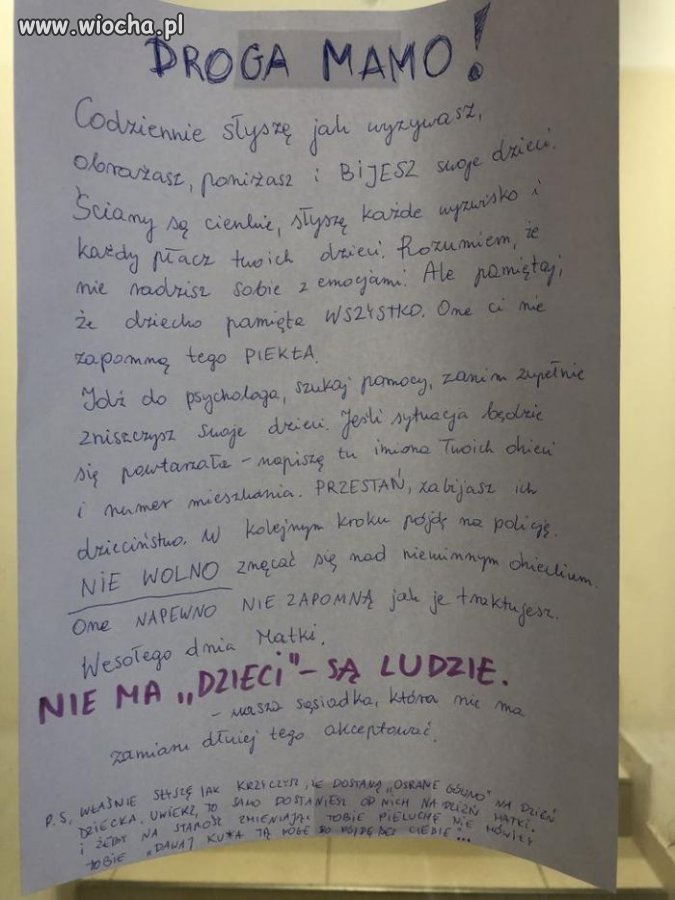 www.wiocha.pl
DROGA MAMO!
Codziennie słyszę jak wyzywasz,
obrażasz, poniżasz i BIJESZ swoje dzieci.
Ściany są cienkie, słyszę każde wyzwisko i
każdy płacz twoich dzieci. Rozumiem, że
nie radzisz sobie z emocjami. Ale pamiętaj,
że dziecko pamięta WSZYSTKO. One ci nie
zapomną tego PIEKŁA.
Idź do psychologa, szukaj pomocy, zanim zupełnie
zniszczysz swoje dzieci. Jeśli sytuacja będzie
się powtarzała - napiszę tu imiona Twoich dzieci
i numer mieszkania. PRZESTAŃ, zabijasz ich
dzieciństwo. W kolejnym kroku pójdę na policję.
NIE WOLNO znęcać się nad niewinnym dzieckiem.
One NAPEWNO NIE ZAPOMNĄ jak je traktujesz.
Wesołego dnia Matki.
NIE MA „DZIECI" - SĄ LUDZIE.
- wasza sąsiadka, która nie ma
zamiaru dłużej tego akceptować.
P.S. WŁAŚNIE SŁYSZĘ JAK KRZYCZYSZ, ŻE DOSTANĄ „OSRANE GÓWNO" NA DZIEŃ
DZIECKA. UWIERZ, TO SAMO DOSTANIESZ OD NICH NA DZIEŃ MATKI.
I ŻEBY NA STAROŚĆ ZMIENIAJĄC TOBIE PIELUCHĘ NIE MÓWIŁY
TOBIE „DAWAJ KU*A TĄ NOGĘ BO PÓJDĘ BEZ CIEBIE"...